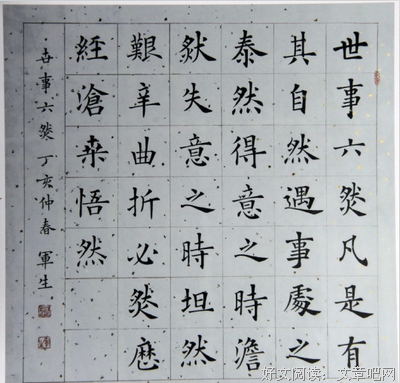 世事六然凡是有
其自然遇事處之
泰然得意之時澹
然失意之時坦然
艱辛曲折必然歷
經滄桒悟然
世事六然 丁亥仲春 軍生
好文阅读: 文章吧网